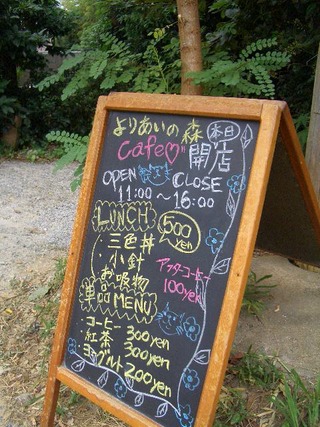 よりあいの森
Cafe♡
本日
開店
OPEN CLOSE
11:00〜16:00
LUNCH
500
yen
・三色丼
・小針
・お吸物
アフターコーヒー
100yen
単品MENU
・コーヒー 300yen
・紅茶 300yen
・ヨーグルト 200yen